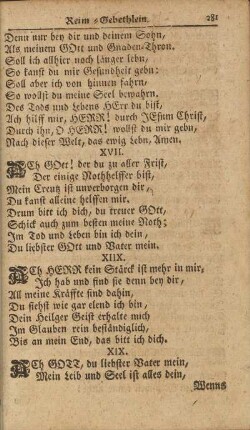 Reim-Gebethlein. 281
Denn nur bey dir und deinem Sohn,
Als meinem GOtt und Gnaden-Thron.
Soll ich allhier noch länger lebn,
So kanst du mir Gesundheit gebn:
Soll aber ich von hinnen fahrn,
So wollst du meine Seel bewahrn.
Des Tods und Lebens HErr du bist,
Ach hilff mir, HERR! durch JEsum Christ,
Durch ihn, O HERR! wollst du mir gebn,
Nach dieser Welt, das ewig Lebn, Amen.
XVII.
ACh GOtt! der du zu aller Frist,
Der einige Nothhelffer bist,
Mein Creutz ist unverborgen dir,
Du kanst alleine helffen mir.
Drum bitt ich dich, du treuer GOtt,
Schick auch zum besten meine Noth;
Im Tod und Leben bin ich dein,
Du liebster GOtt und Vater mein.
XIIX.
ACh HERR kein Stärck ist mehr in mir,
Ich hab und find sie denn bey dir,
All meine Kräffte sind dahin,
Du siehst wie gar elend ich bin,
Dein Heilger Geist erhalte mich
Im Glauben rein beständiglich,
Bis an mein End, das bitt ich dich.
XIX.
ACh GOTT, du liebster Vater mein,
Mein Leib und Seel ist alles dein,
Wenns